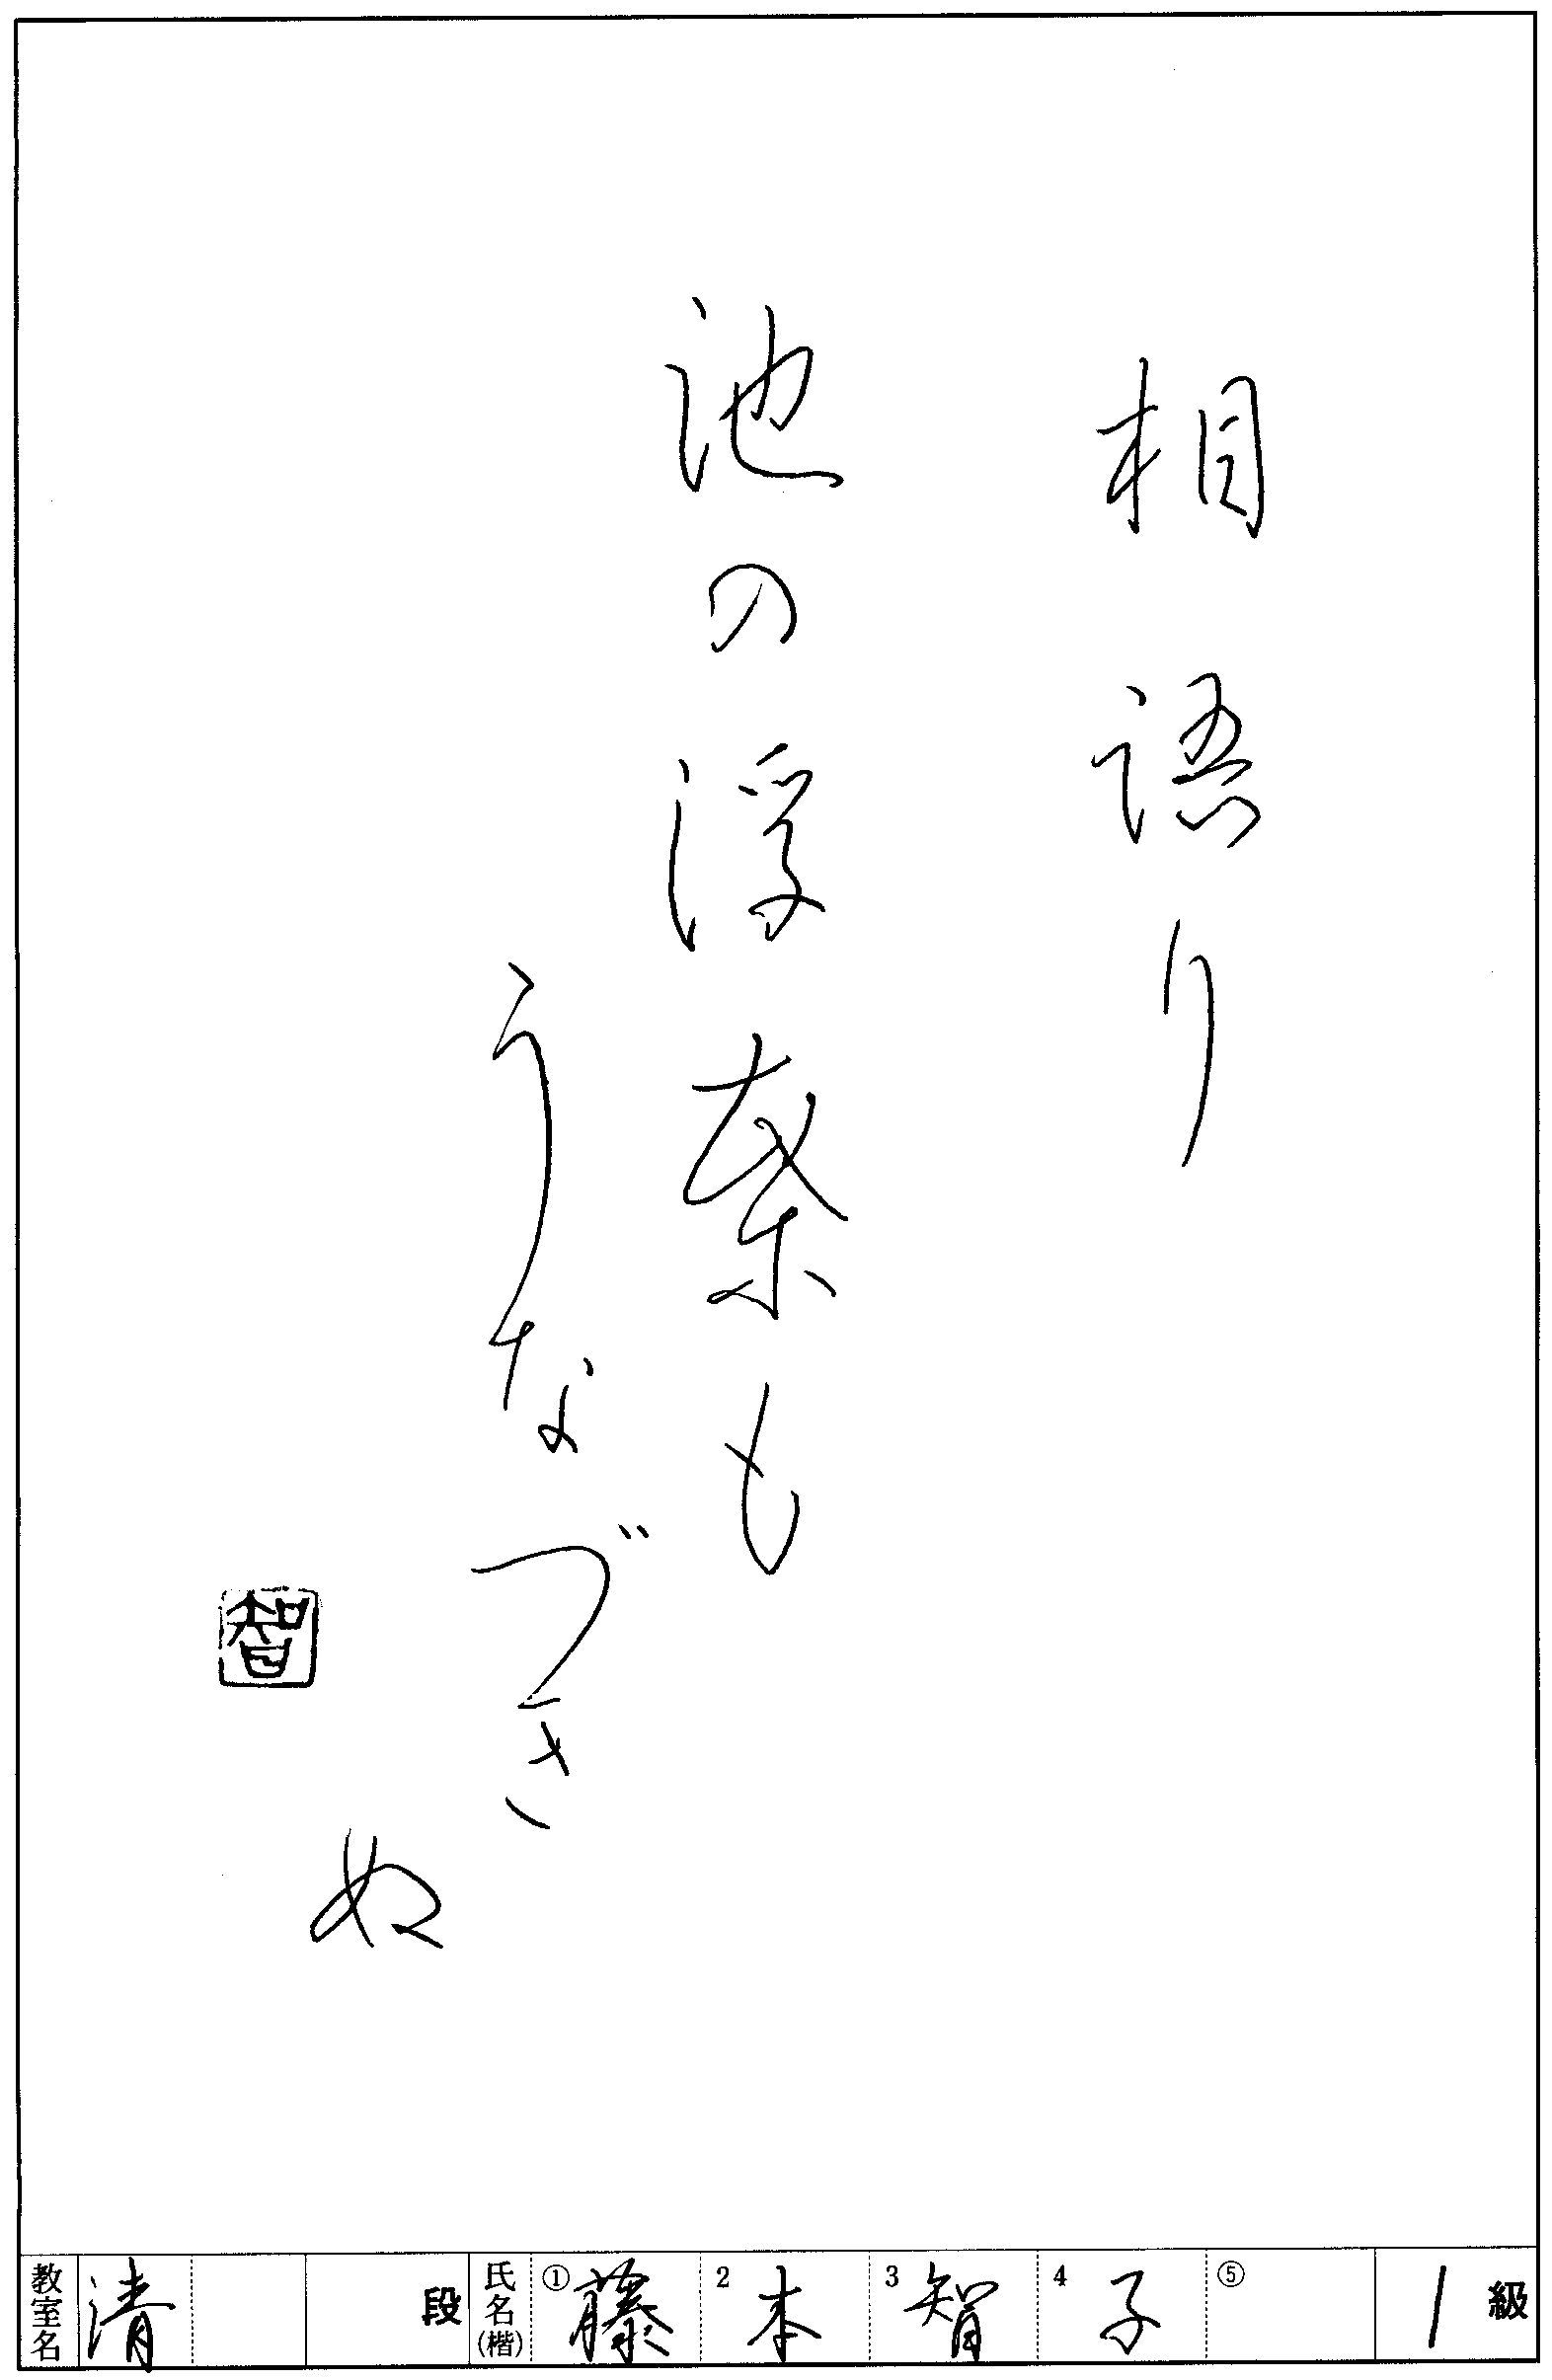 相語り
池の浮葉も
うなづき
ぬ
智
教室名 清 段 氏名(楷) ①藤 2本 3智 4子 ⑤ 1級